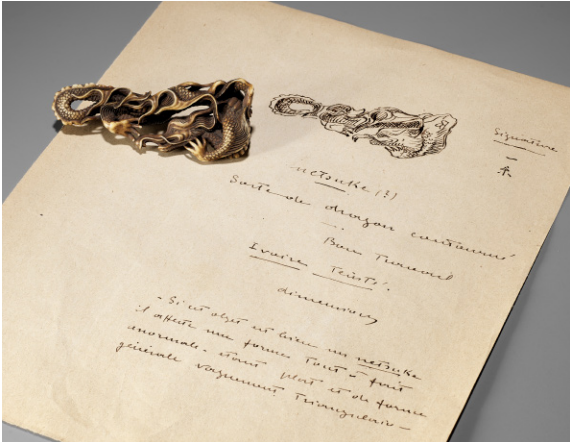 Signature
netsuke (?)
Sorte de dragon contourné
Ivoire Teinté.
dimensions
- Si cet objet est bien un netsuke
il affecte une forme tout à fait
anormale - étant plat et de forme
générale vaguement triangulaire -